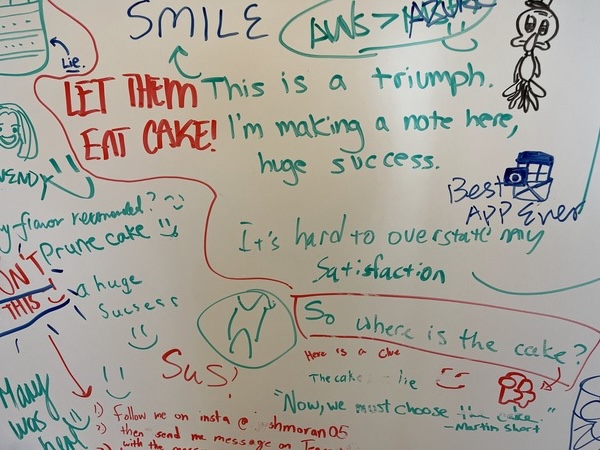 SMILE
AWS > AZURE
Lie.
LET THEM
EAT CAKE!
This is a triumph.
I'm making a note here,
huge success.
WENDY
Best
APP Ever
flavor recomended?
Prune cake
It's hard to overstate my
Satisfaction
THIS
a huge
Sucsess
So where is the cake?
Here is a clue
The cake lie
SuS!
"Now, we must choose the cake."
-Martin Short
Many
was
1) follow me on insta @ shmoran05
2) then send me message on
with the